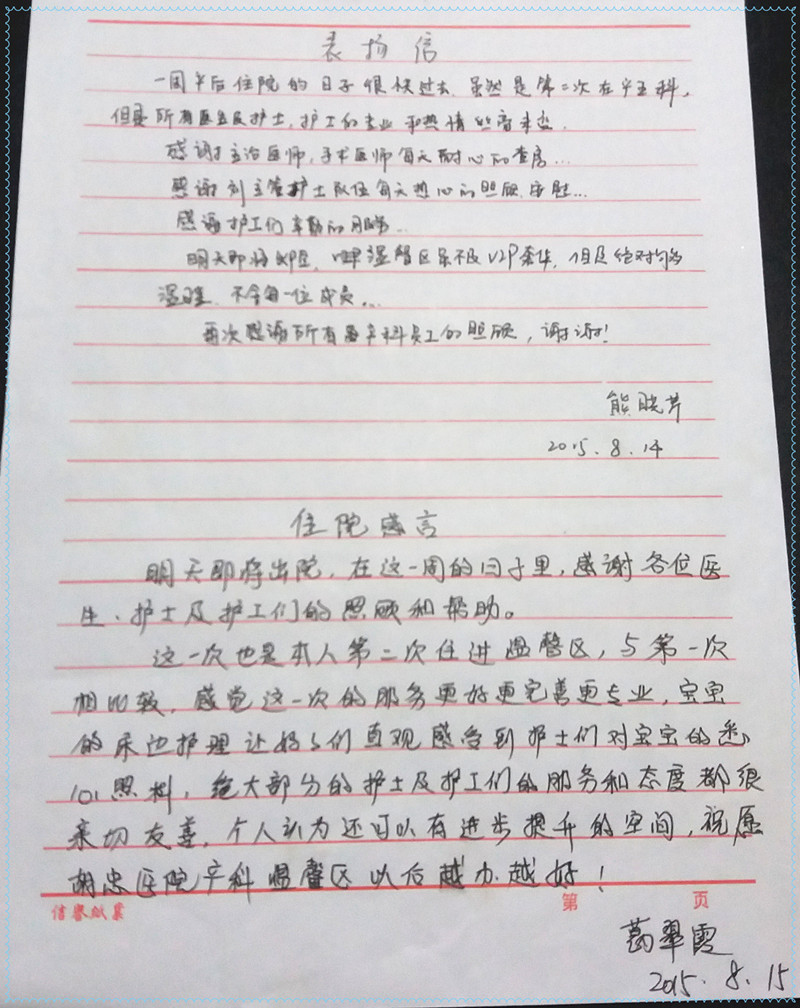 表扬信
一周半后住院的日子很快过去,虽然是第二次在产五科,
但是所有医生及护士,护工的专业和热情
感谢主治医师,手术医师每天耐心的查房...
感谢 护士队伍每天热心的照顾,安慰...
感谢护工们辛勤的服务...
明天即将出院, 温馨区虽不及VIP条件,但是绝对
温暖, 每一位成员...
再次感谢所有 产科员工的照顾,谢谢!
熊晓芹
2015.8.14
住院感言
明天即将出院,在这一周的日子里,感谢各位医
生、护士及护工们的照顾和帮助。
这一次也是本人第二次住进温馨区,与第一次
相比较,感觉这一次的服务更好更完善更专业,宝宝
的床边护理让 们直观感受到护士们对宝宝的悉
心照料,绝大部分的护士及护工们的服务和态度都很
亲切友善,个人认为还可以有进步提升的空间,祝愿
医院产科温馨区以后越办越好!
信誉纸业 第 页
葛翠霞
2015.8.15